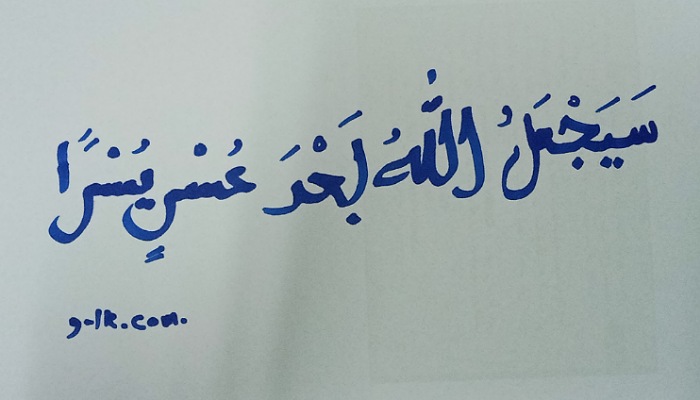 سَيَجْعَلُ اللّٰهُ بَعْدَ عُسْرٍ يُسْرًا
g-lk.com.